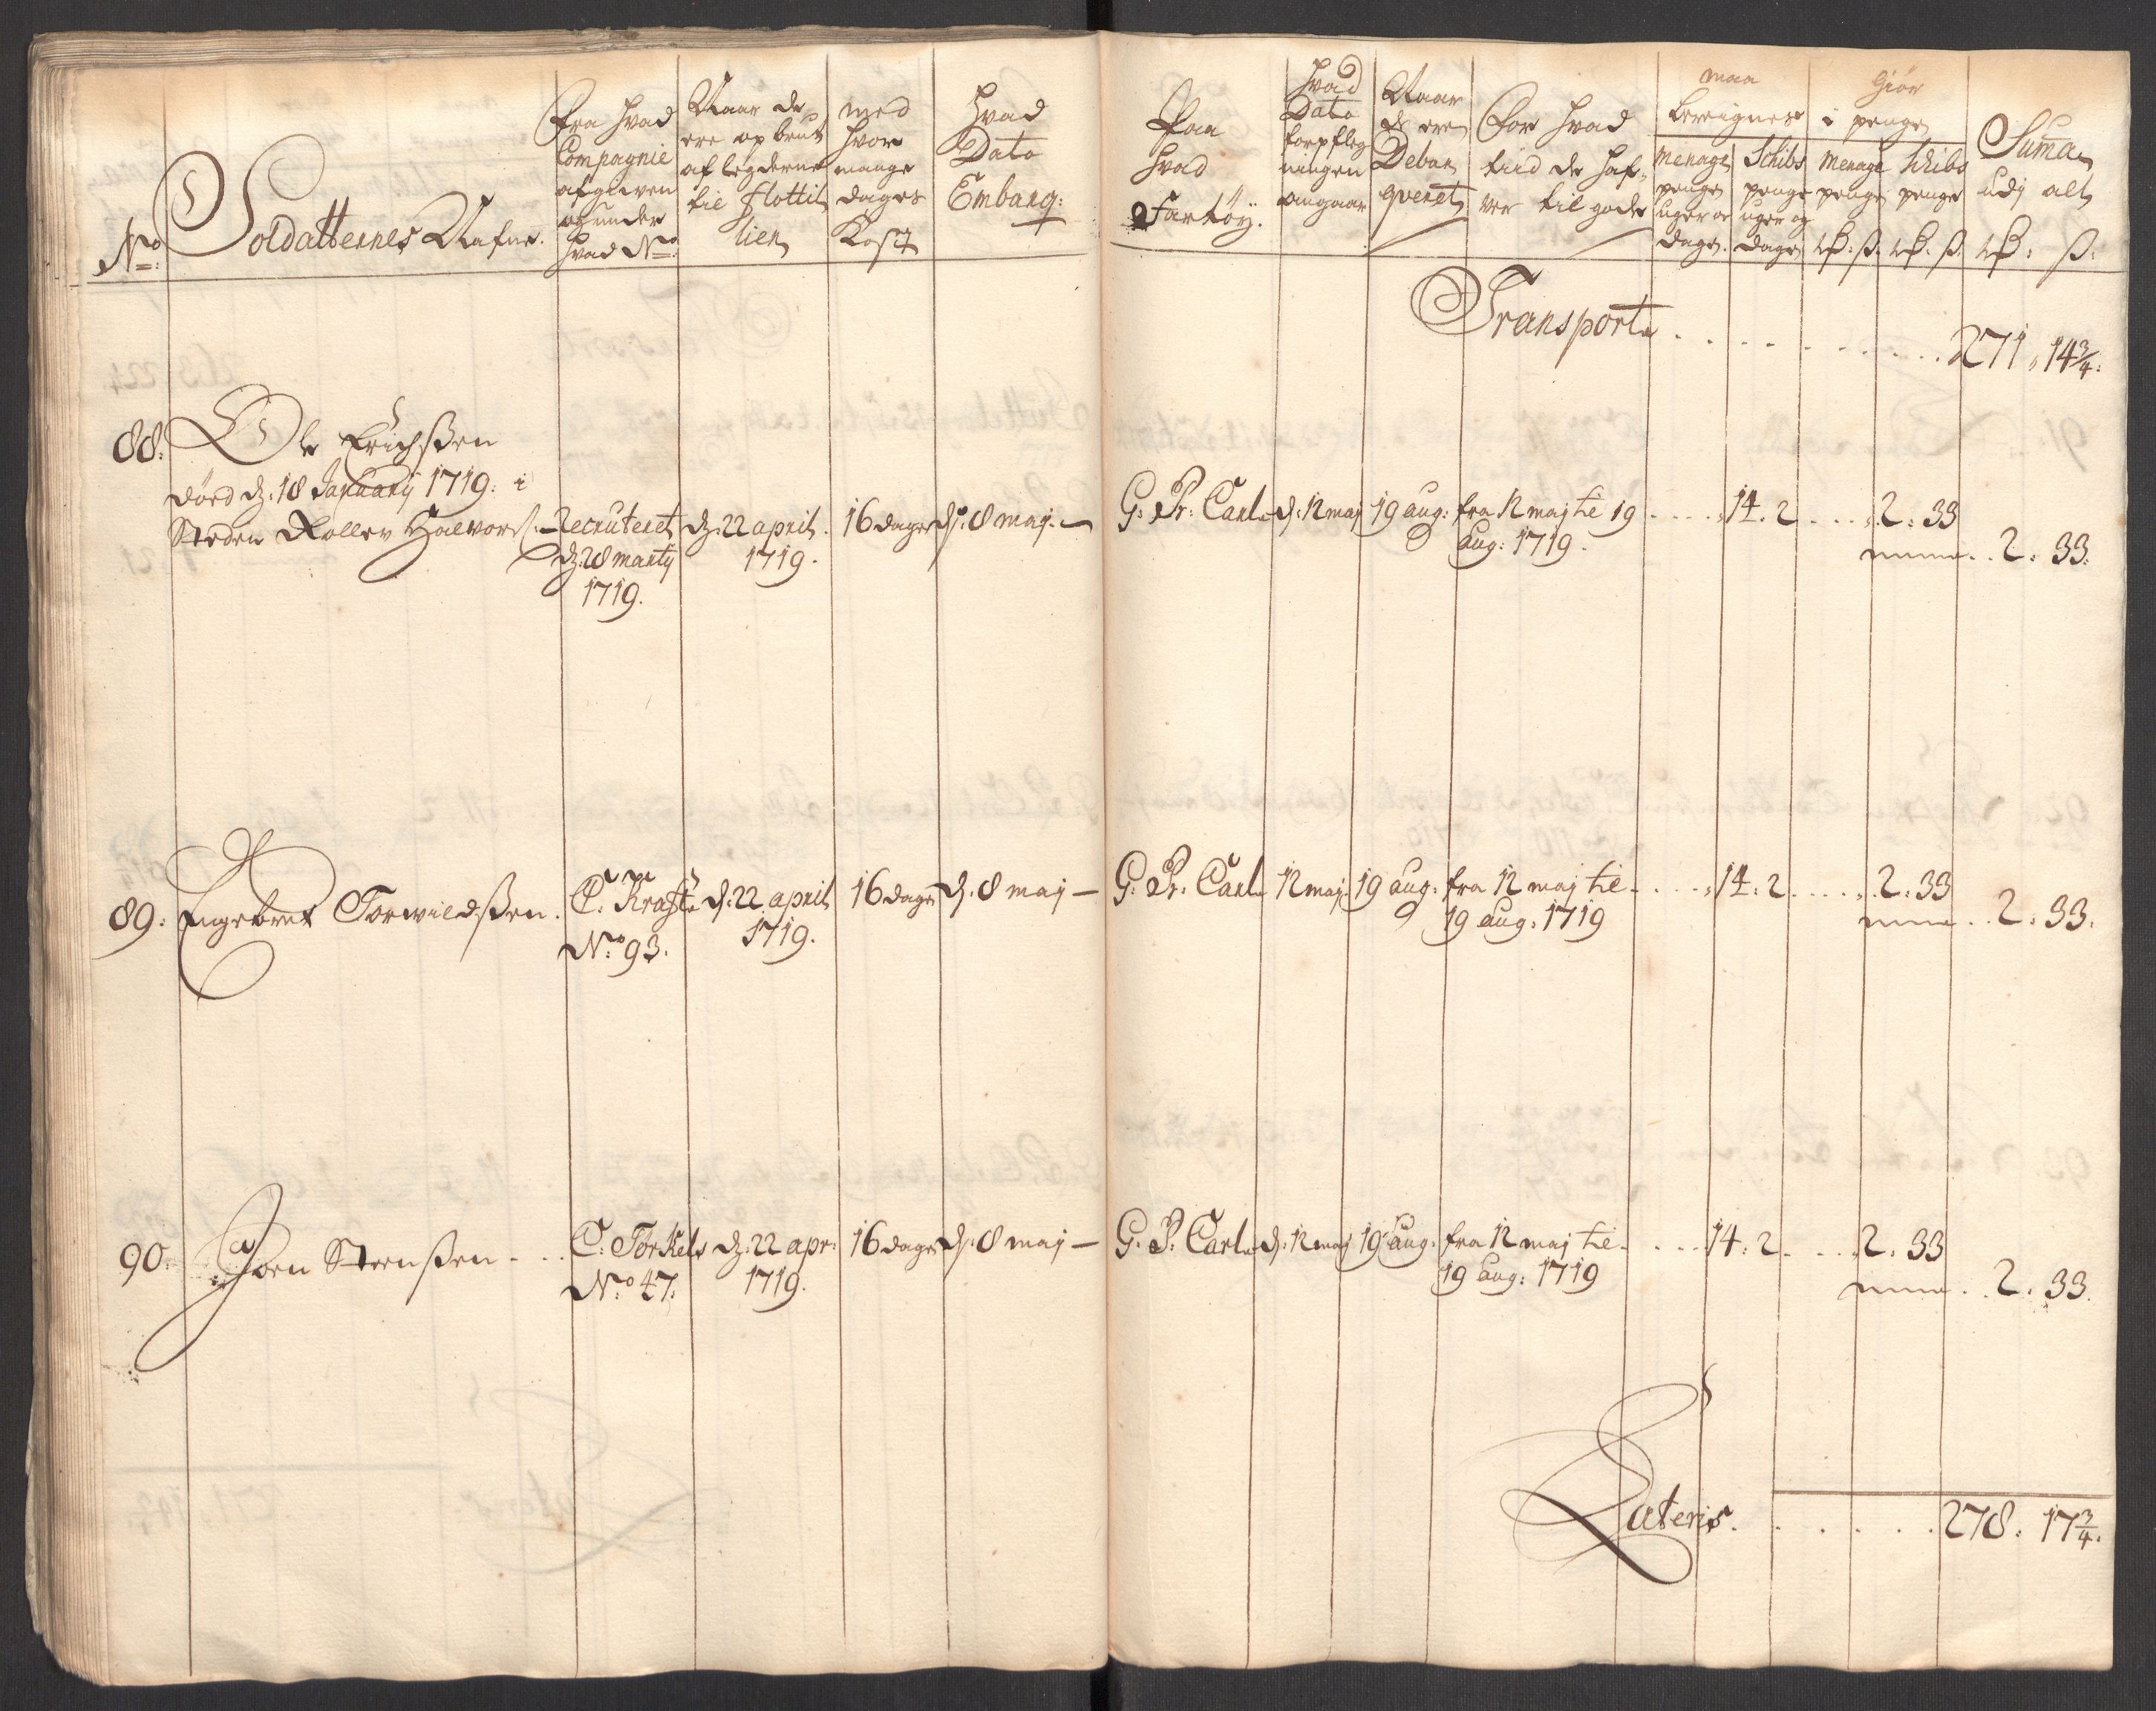 No:
Soldatternes Nafne.
Fra hvad
Compagnie
afgiven
og under
hvad No:
Naar de
ere op brut
af legderne
til flottil
lien
med
hvor
mange
dages
Kost
hvad
Dato
Embarq:
Paa
hvad
Fartöy.
hvad
Dato
forpfleg
ningen
angaar
Naar
de ere
Deban
qveret
For hvad
tiid de haf-
ver til gode
maa
bereignes
menage
penge
uger og
dage.
Schibs
penge
uger og
dage
Giör
i penge
menage
penge
rß: ß.
schibs
penge
rß: ß.
Suma
udj alt
rß: ß:
Transport . . . . . . . . 271. 14 3/4:
88: Ole Erichßen
döed d: 18 January 1719: i
Steden Rollev Halvorß: Recruteret d: 22 april. 16 dage d: 8 maj. G: Pr: Carl d: 12 maj 19 aug: fra 12 maj til 19 .... 14. 2 .... 2: 33
d: 28 marty 1719. aug: 1719. 2: 33:
1719.
89: Engebret Torwildßen. C: Kraft d: 22 april 16 dage d: 8 maj — G: Pr: Carl 12 maj 19 aug: fra 12 maj til .... 14: 2 .... 2: 33
No: 93. 1719. 19 aug: 1719 2: 33.
90: Joen Steenßen - .. C: Torkels d: 22 apr: 16 dage d: 8 maj — G: P: Carl d: 12 maj 19 aug: fra 12 maj til .... 14: 2 .... 2. 33
No: 47: 1719. 19 aug: 1719 2. 33.
Lateris. . . . . . 278. 17 3/4.